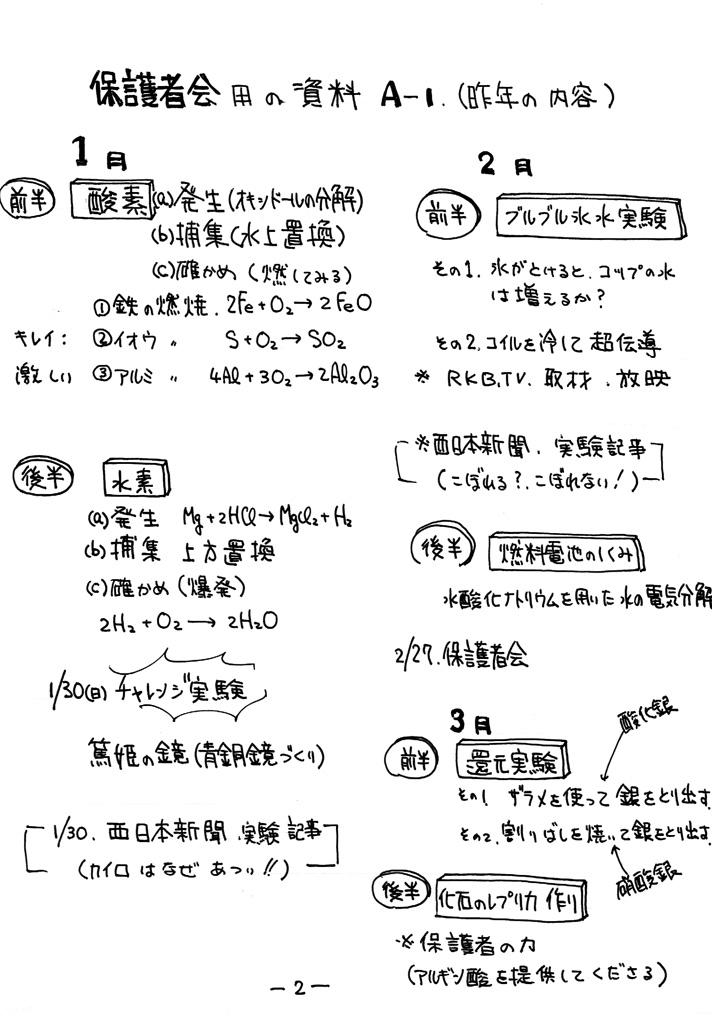 保護者会用の資料 A-1.(昨年の内容)
1月
前半 酸素 (a)発生(オキシドールの分解)
(b)捕集(水上置換)
(c)確かめ(燃してみる)
①鉄の燃焼. 2Fe+O₂→2FeO
キレイ: ②イオウ 〃 S+O₂→SO₂
激しい ③アルミ 〃 4Al+3O₂→2Al₂O₃
後半 水素
(a)発生 Mg+2HCl→MgCl₂+H₂
(b)捕集 上方置換
(c)確かめ(爆発)
2H₂+O₂→2H₂O
1/30(日) チャレンジ実験
篤姫の鏡(青銅鏡づくり)
1/30. 西日本新聞.実験記事
(カイロはなぜあつい!!)
2月
前半 ブルブル氷水実験
その1. 氷がとけると、コップの水
は増えるか?
その2.コイルを冷して超伝導
※ RKB.TV.取材.放映
※西日本新聞.実験記事
(こぼれる?.こぼれない!)
後半 燃料電池のしくみ
水酸化ナトリウムを用いた水の電気分解
2/27.保護者会
3月
酸化銀
前半 還元実験
その1. ザラメを使って銀をとり出す
その2.割りばしを焼いて銀をとり出す.
硝酸銀
後半 化石のレプリカ作り
※保護者の力
(アルギン酸を提供してくださる)
-2-